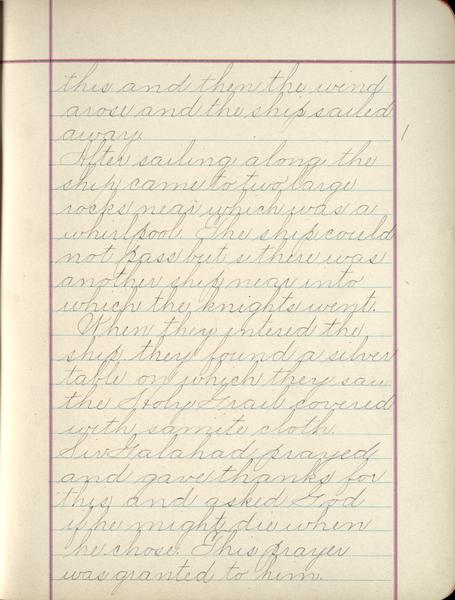 this and then the wind
arose and the ship sailed
away.
After sailing along the
ship came to two large
rocks near which was a
whirlpool. The ship could
not pass but s there was
another ship near into
which the knights went.
When they intered the
ship they found a silver
table on which they saw
the Holy Grail covered
with samite cloth.
Sir Galahad prayed
and gave thanks for
this and asked God
if he might die when
he chose. This prayer
was granted to him.